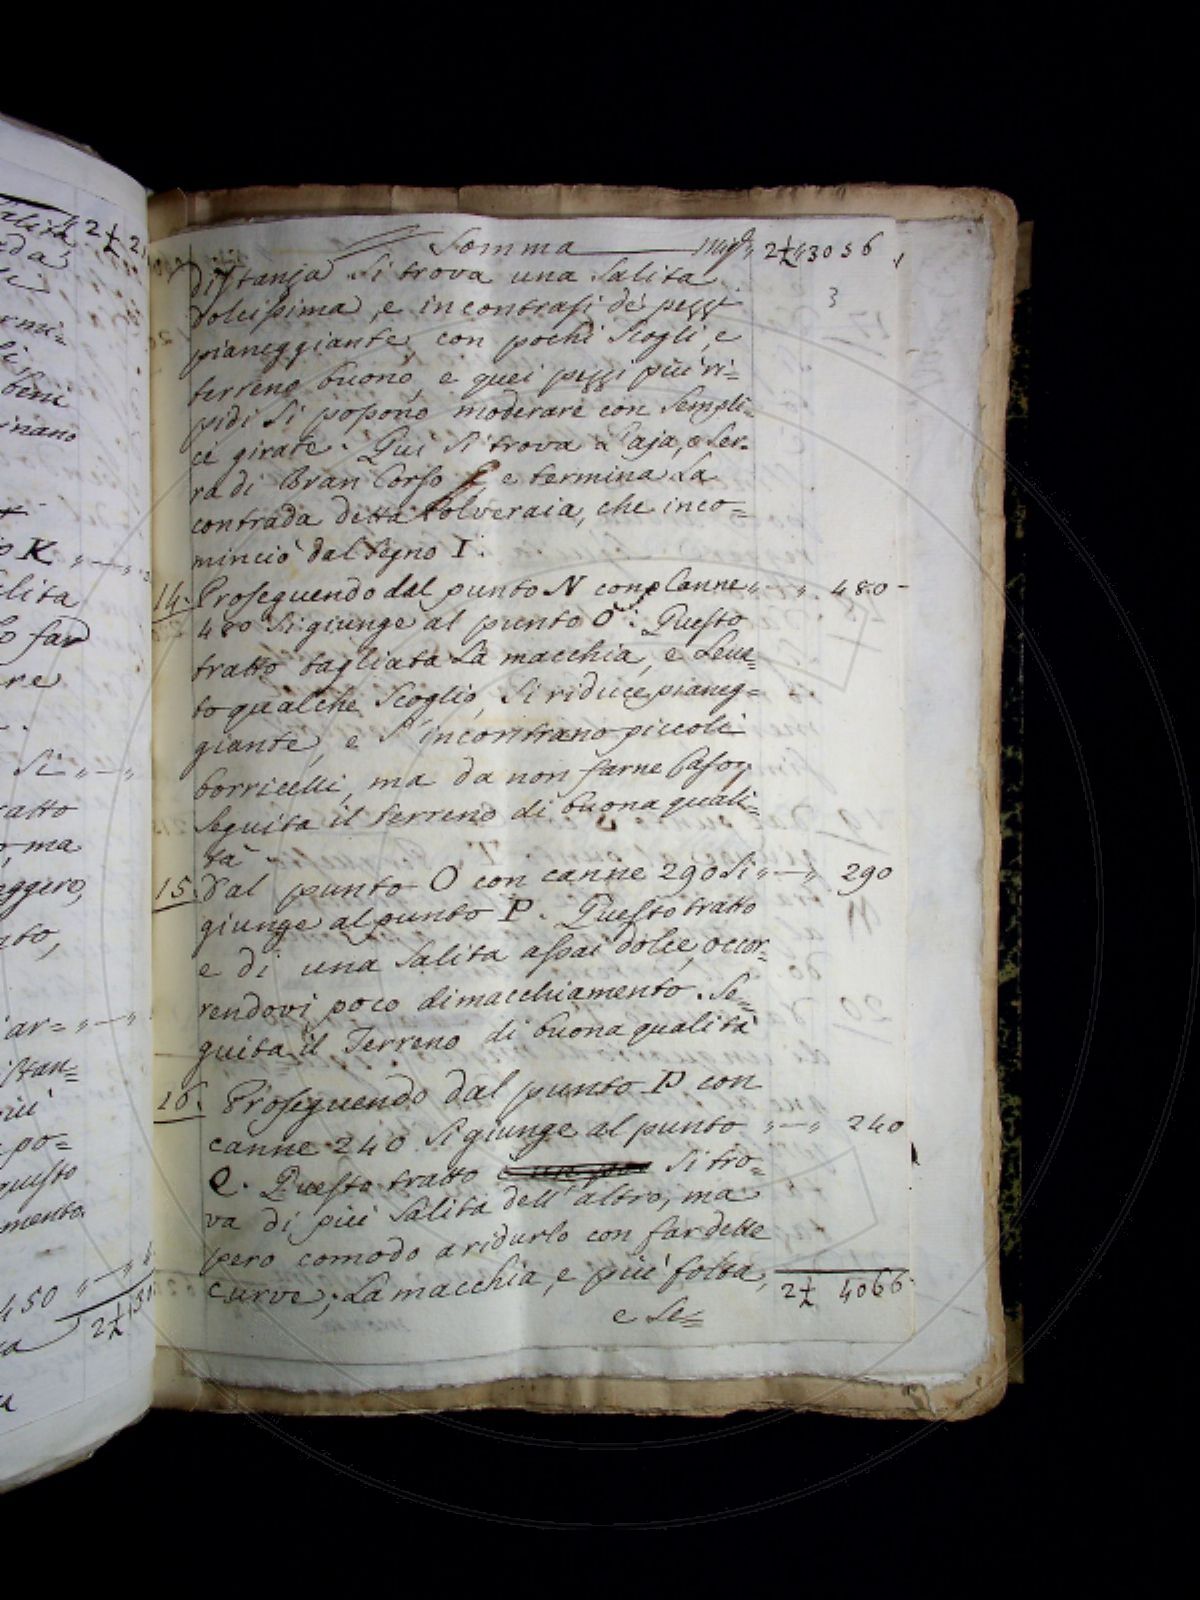 Somma miga 2½ 3056
distanza si trova una salita
dolcissima, e incontrasi de pezzi
pianeggiante con pochi scogli, e
terreno buono, e quei pezzi più ri=
pidi si possono moderare con sempli=
ce girate. Qui si trova a Caja, e Ser-
ra di Bran Corso e termina La
contrada detta Polveraia, che inco=
minciò dal segno I.
14. Proseguendo dal punto N con Canne „—„ 480-
480 si giunge al punto O: Questo
tratto tagliata La macchia, e Leva=
to qualche scoglio, si riduce pianeg=
giante, e s'incontrano piccoli
borricelli, ma da non farne caso,
seguita il terreno di buona quali=
tà
15. Dal punto O con canne 290 si „—„ 290
giunge al punto P. Questo tratto
e di una salita assai dolce, occor=
rendovi poco dimacchiamento. Se=
guita il Terreno di buona qualità
16. Proseguendo dal punto P con
canne 240 si giunge al punto „—„ 240
Q. Questo tratto si tro=
va di più salita dell'altro, ma
pero comodo a ridurlo con far delle
curve; La macchia, e più folta,
2½ 4066
e Le=